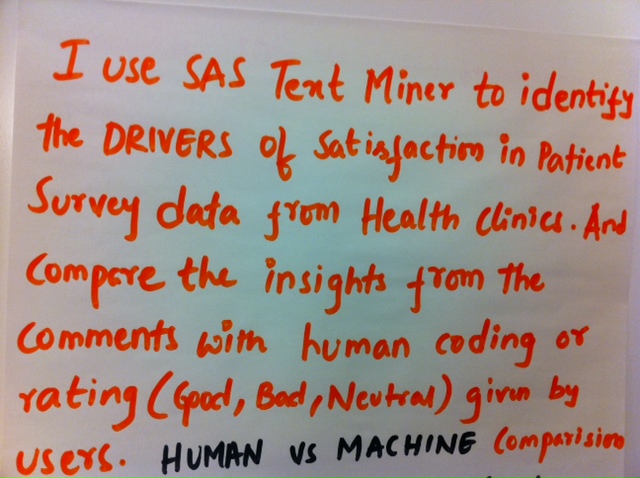 I use SAS Text Miner to identify
the DRIVERS of Satisfaction in Patient
Survey data from Health Clinics. And
Compare the insights from the
Comments with human coding or
rating (Good, Bad, Neutral) given by
users. HUMAN vs MACHINE Comparision